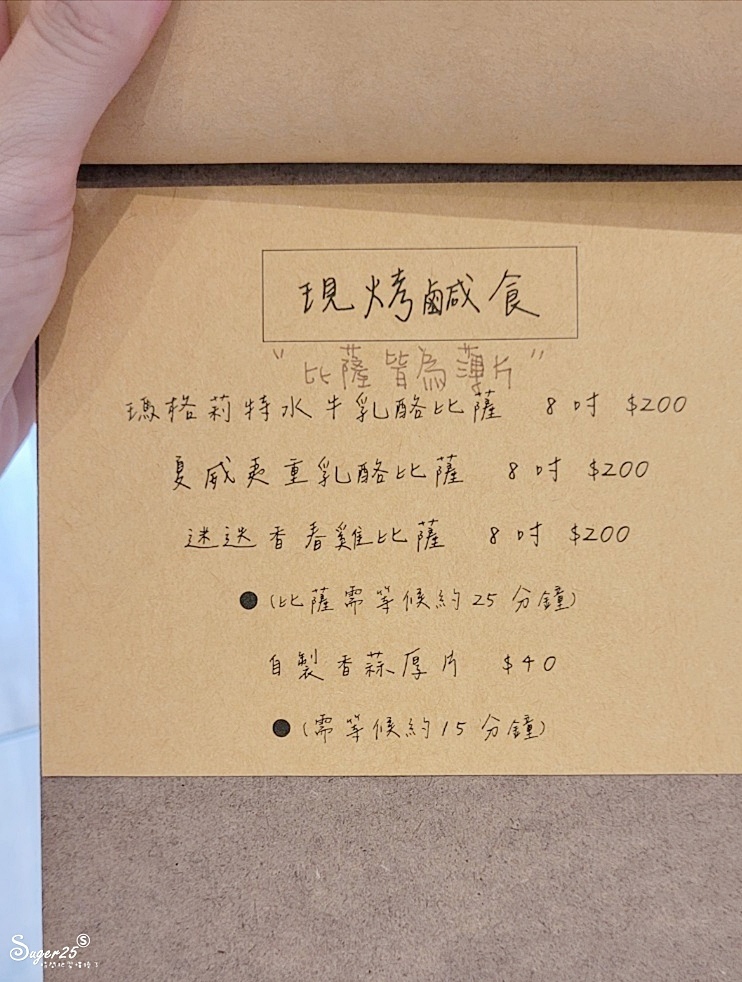 現烤鹹食
"比薩皆為薄片"
瑪格莉特水牛乳酪比薩 8吋 $200
夏威夷重乳酪比薩 8吋 $200
迷迭香春雞比薩 8吋 $200
●(比薩需等候約25分鐘)
自製香蒜厚片 $40
●(需等候約15分鐘)
Suger25